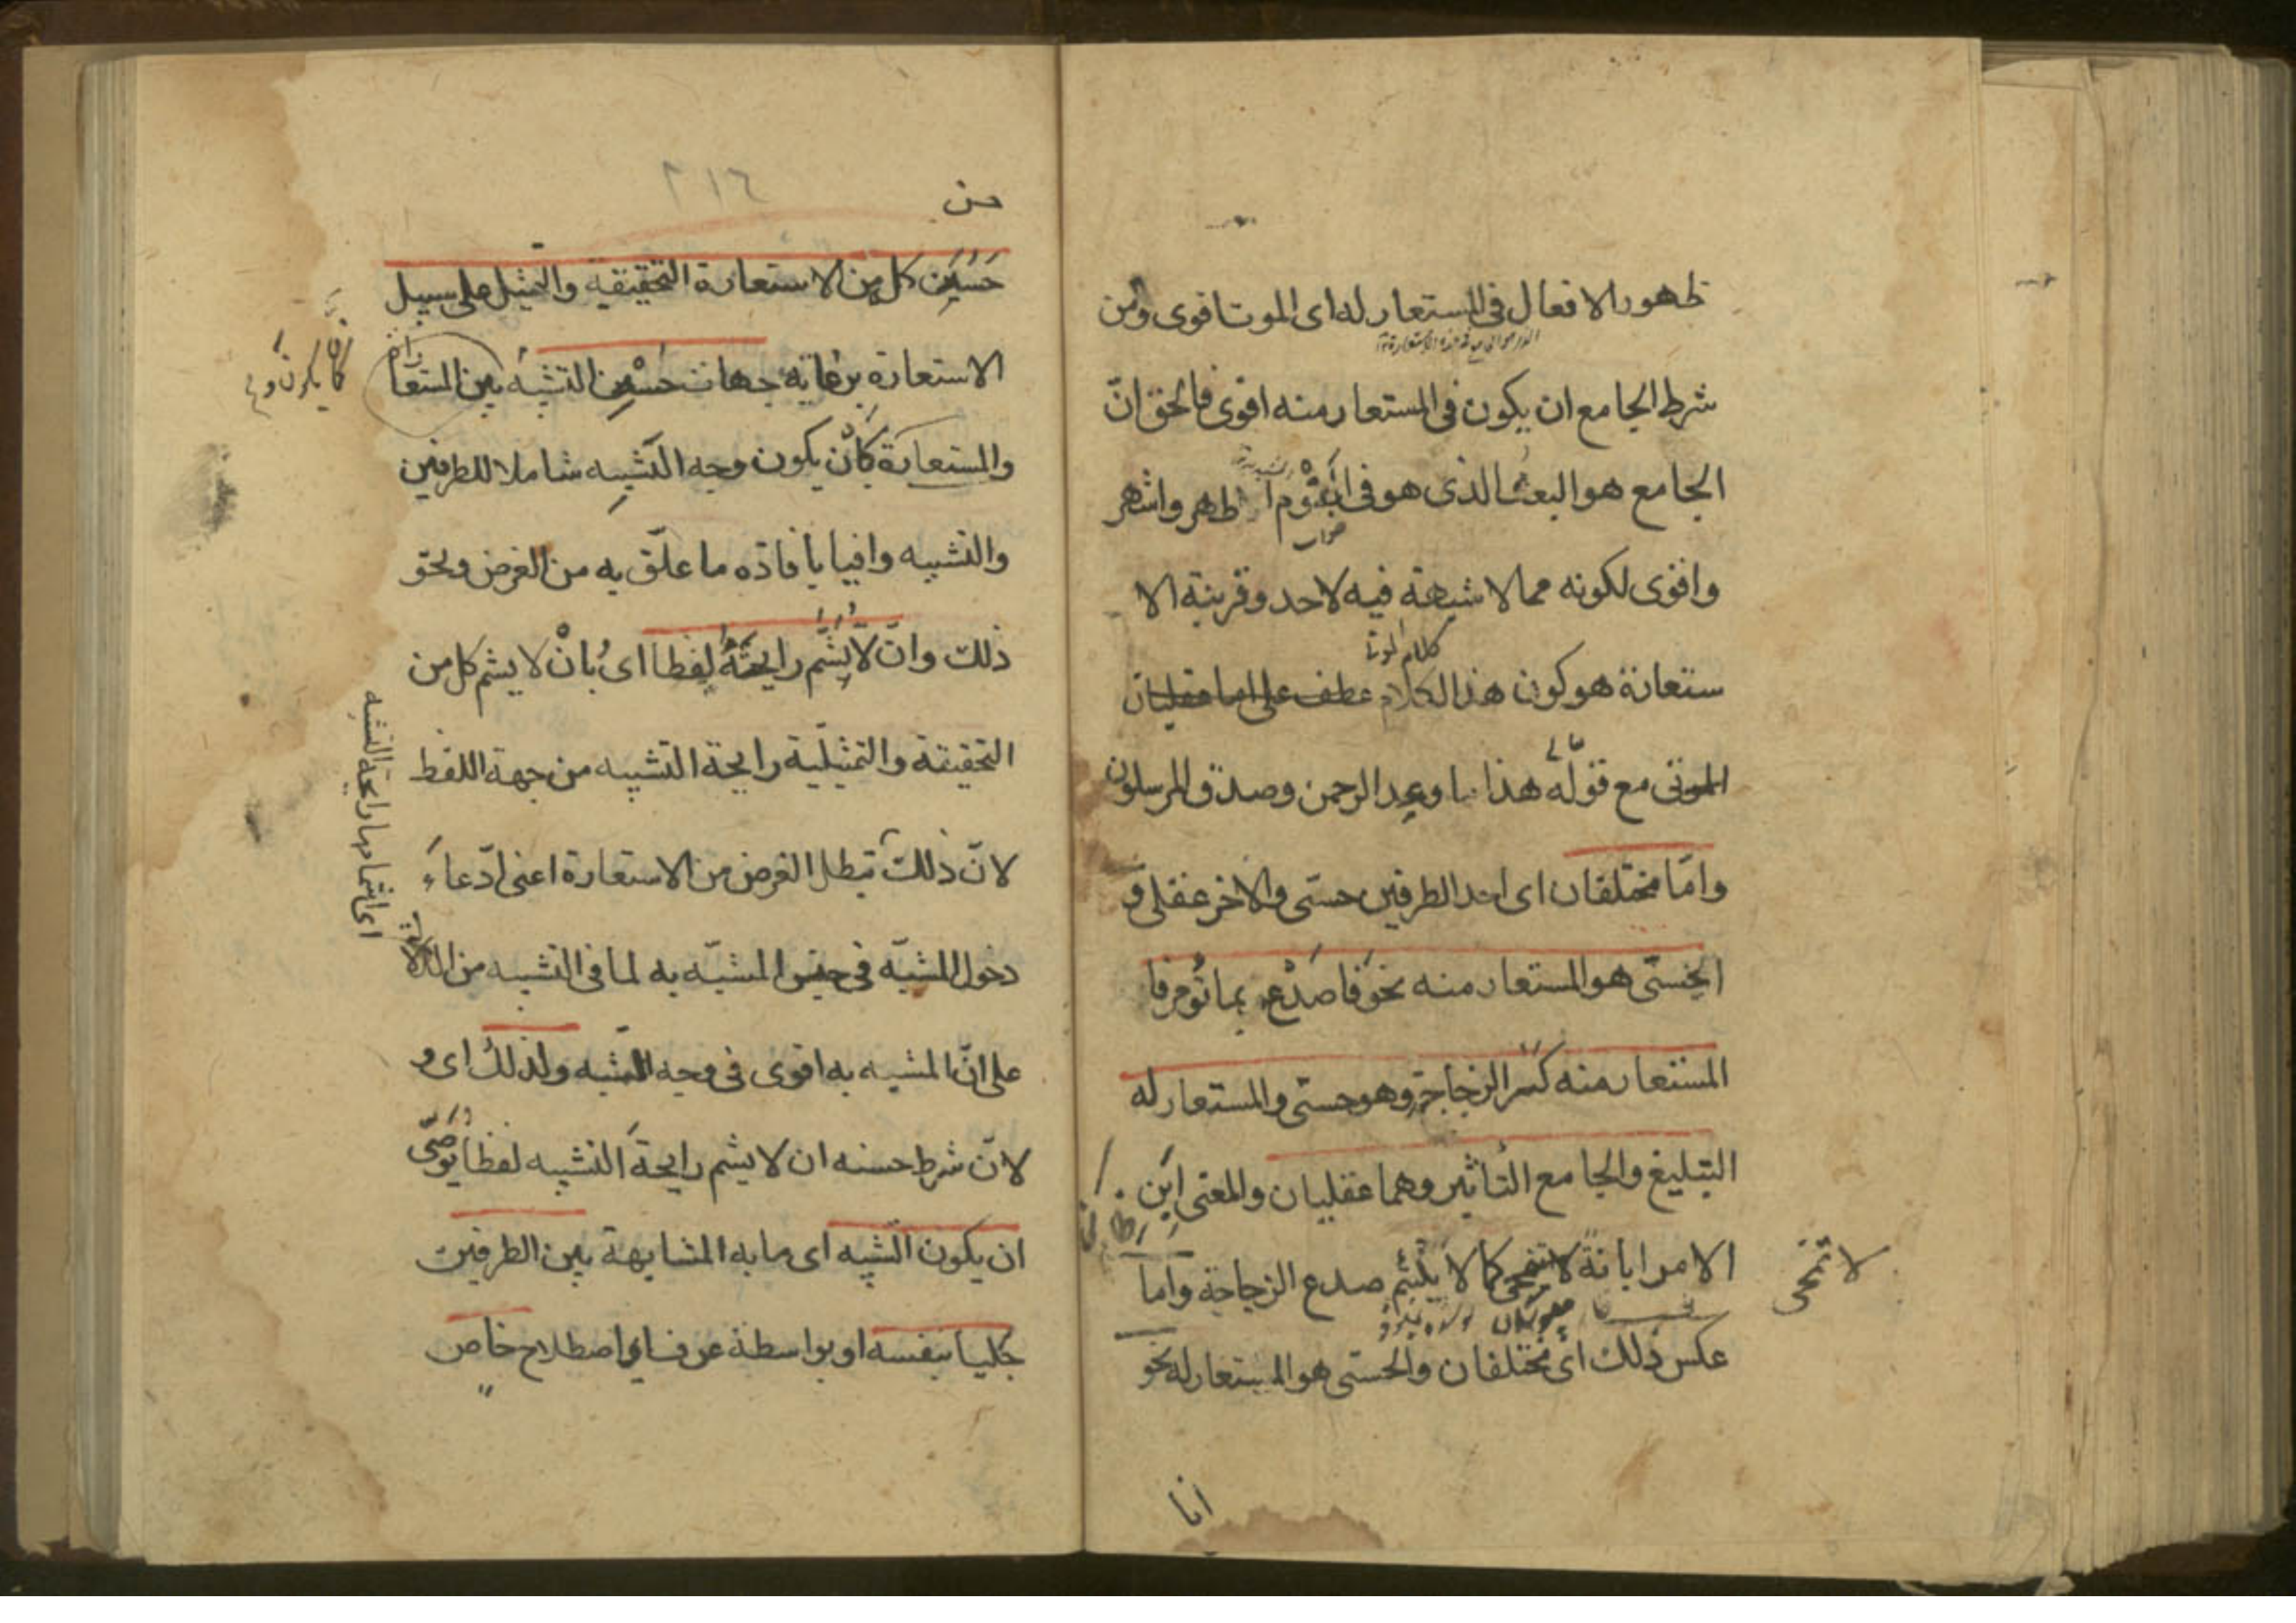 ظهور الافعال فى المستعار له اى الموت اقوى ومن
شرط الجامع ان يكون فى المستعار منه اقوى فالحق انّ
الجامع هو البعث الذى هو فى النّوم اظهر واشهر
صوابه
واقوى لكونه مما لا شبهة فيه لاحد وقرينة الا
كلام الموتى
ستعارة هو كون هذا الكلام عطف على اما عقليان
الموتى مع قوله هذا ما وعد الرحمن وصدق المرسلون
وامّا مختلفان اى احد الطرفين حسّى والاخر عقلى و
الحسّى هو المستعار منه نحو فاصدع بما تؤمر فا
المستعار منه كسر الزجاجة وهو حسّى والمستعار له
التبليغ والجامع التأثير وهما عقليان والمعنى ابن
الامر ابانة لا تنمحى كما لا يلتئم صدع الزجاجة واما
لا تنمحى
عكس ذلك اى مختلفان والحسّى هو المستعار له نحو
انا
٢١٦
حسن
حسن كل من الاستعارة التحقيقية والتمثيل على سبيل
الاستعارة برعاية جهات حسن التشبيه بين المستعا
والمستعارة كأن يكون وجه التشبيه شاملا للطرفين
والتشبيه وافيا بافاده ما علّق به من الغرض ونحو
ذلك وان لا يشمّ رايحته لفظا اى بان لا يشم كل من
التحقيقة والتمثيلية رايحة التشبيه من جهة اللفظ
اى اشمامها رايحة التشبيه
لانّ ذلك يبطل الغرض من الاستعارة اعنى ادّعاء
دخول المشبّه فى جنس المشبّه به لما فى التشبيه من الدلالة
على انّ المشبه به اقوى فى وجه الشبه ولذلك اى و
لانّ شرط حسنه ان لا يشم رايحة التشبيه لفظا يوصّى
ان يكون الشبه اى ما به المشابهة بين الطرفين
جليا بنفسه او بواسطة عرف او اصطلاح خاص